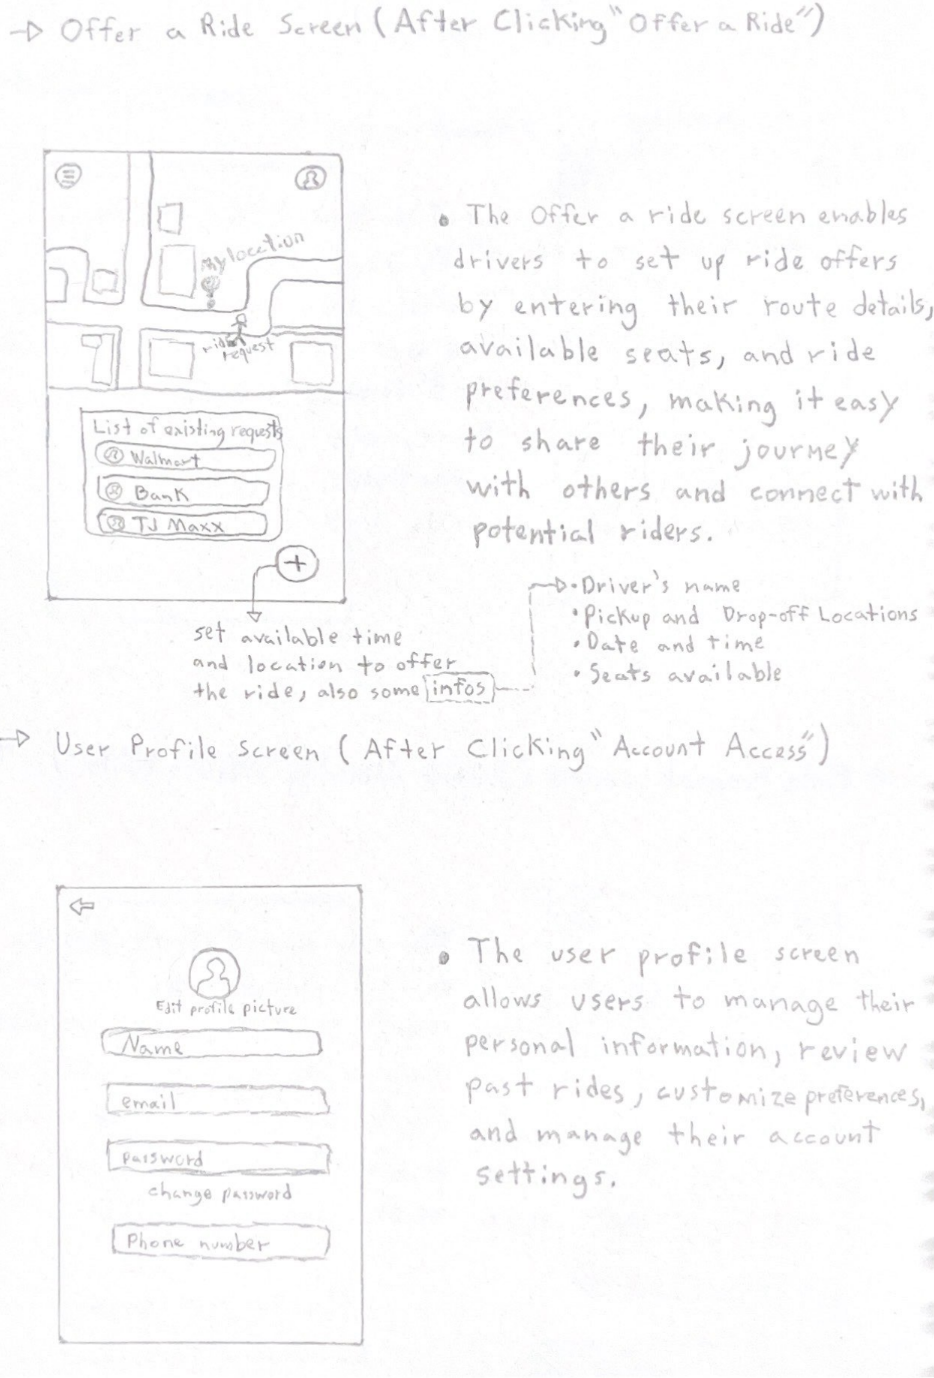 Offer a Ride Screen (After Clicking "Offer a Ride")
My location
ride request
List of existing requests
Walmart
Bank
TJ Maxx
+
set available time
and location to offer
the ride, also some infos
• The Offer a ride screen enables
drivers to set up ride offers
by entering their route details,
available seats, and ride
preferences, making it easy
to share their journey
with others and connect with
potential riders.
• Driver's name
• Pickup and Drop-off Locations
• Date and time
• Seats available
User Profile Screen (After Clicking "Account Access")
Edit profile picture
Name
email
password
change password
Phone number
• The user profile screen
allows users to manage their
personal information, review
past rides, customize preferences,
and manage their account
settings.